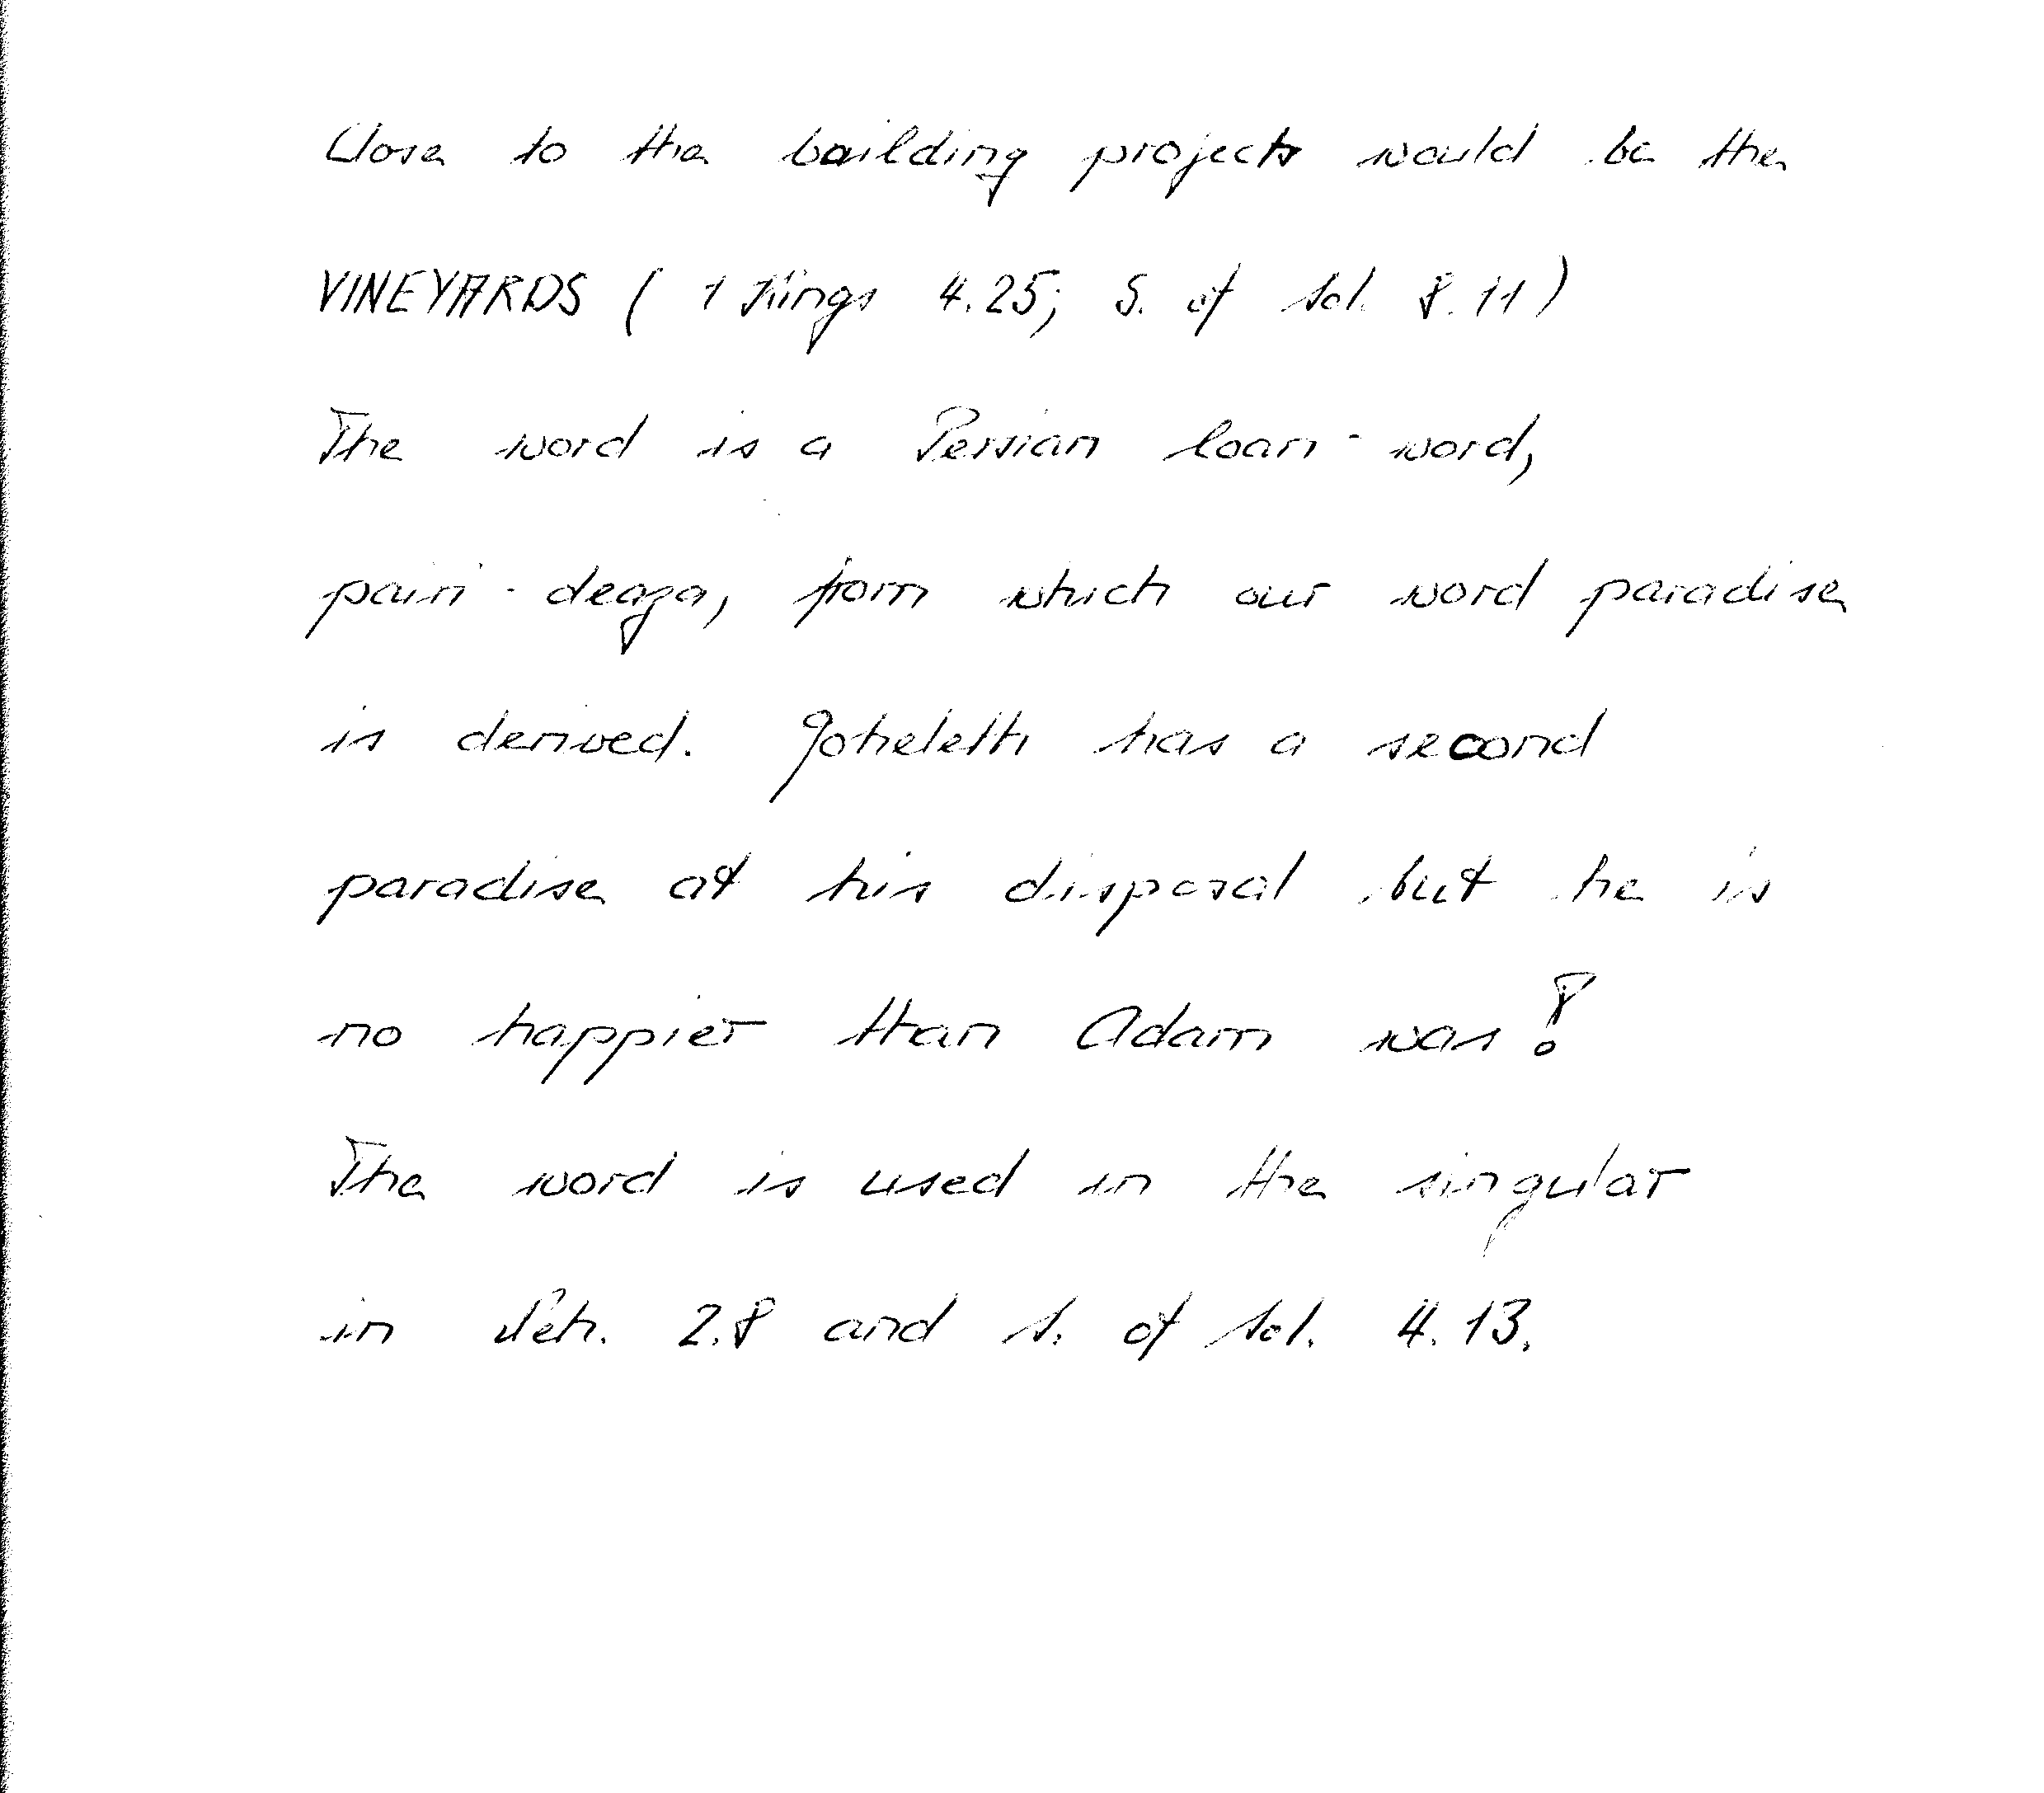 Close to the building projects would be the
VINEYARDS ( 1 Kings 4.25; S. of Sol. 8.11)
The word is a Persian loan-word,
pairi-deaza, from which our word paradise
is derived. Qoheleth has a second
paradise at his disposal but he is
no happier than Adam was!
The word is used in the singular
in Neh. 2.8 and S. of Sol. 4.13.